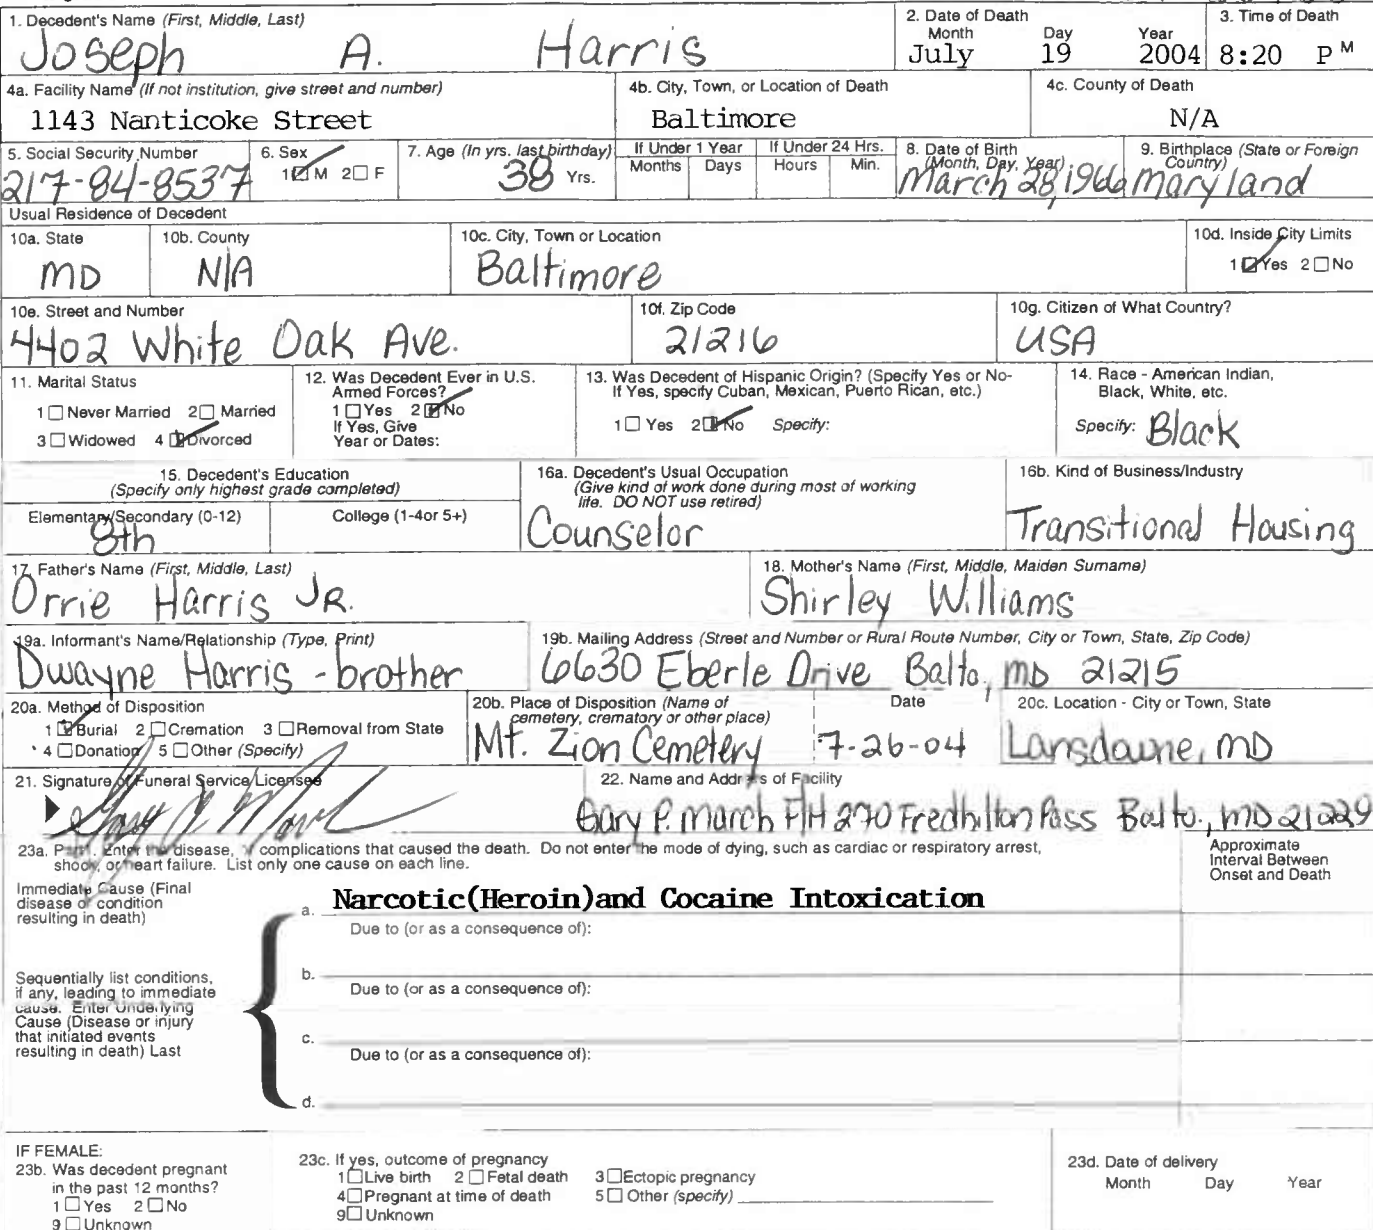 1. Decedent's Name (First, Middle, Last)
Joseph A. Harris
2. Date of Death
Month Day Year
July 19 2004
3. Time of Death
8:20 P M
4a. Facility Name (If not institution, give street and number)
1143 Nanticoke Street
4b. City, Town, or Location of Death
Baltimore
4c. County of Death
N/A
5. Social Security Number
217-84-8537
6. Sex
1 M 2 F
7. Age (In yrs. last birthday)
38 Yrs.
If Under 1 Year
Months Days
If Under 24 Hrs.
Hours Min.
8. Date of Birth
(Month, Day, Year)
March 28, 1966
9. Birthplace (State or Foreign
Country)
Maryland
Usual Residence of Decedent
10a. State
MD
10b. County
N/A
10c. City, Town or Location
Baltimore
10d. Inside City Limits
1 Yes 2 No
10e. Street and Number
4402 White Oak Ave.
10f. Zip Code
21216
10g. Citizen of What Country?
USA
11. Marital Status
1 Never Married 2 Married
3 Widowed 4 Divorced
12. Was Decedent Ever in U.S.
Armed Forces?
1 Yes 2 No
If Yes, Give
Year or Dates:
13. Was Decedent of Hispanic Origin? (Specify Yes or No-
If Yes, specify Cuban, Mexican, Puerto Rican, etc.)
1 Yes 2 No Specify:
14. Race - American Indian,
Black, White, etc.
Specify: Black
15. Decedent's Education
(Specify only highest grade completed)
Elementary/Secondary (0-12) College (1-4or 5+)
8th
16a. Decedent's Usual Occupation
(Give kind of work done during most of working
life. DO NOT use retired)
Counselor
16b. Kind of Business/Industry
Transitional Housing
17. Father's Name (First, Middle, Last)
Orrie Harris JR.
18. Mother's Name (First, Middle, Maiden Surname)
Shirley Williams
19a. Informant's Name/Relationship (Type, Print)
Dwayne Harris - brother
19b. Mailing Address (Street and Number or Rural Route Number, City or Town, State, Zip Code)
6630 Eberle Drive Balto, MD 21215
20a. Method of Disposition
1 Burial 2 Cremation 3 Removal from State
4 Donation 5 Other (Specify)
20b. Place of Disposition (Name of
cemetery, crematory or other place)
Mt. Zion Cemetery
Date
7-26-04
20c. Location - City or Town, State
Lansdowne, MD
21. Signature of Funeral Service Licensee
22. Name and Address of Facility
Gary P. March F/H 270 Fredhilton Pass Balto., MD 21229
23a. Part 1. Enter the disease, complications that caused the death. Do not enter the mode of dying, such as cardiac or respiratory arrest,
shock, or heart failure. List only one cause on each line.
Approximate
Interval Between
Onset and Death
Immediate Cause (Final
disease or condition
resulting in death)
a. Narcotic(Heroin)and Cocaine Intoxication
Due to (or as a consequence of):
b.
Due to (or as a consequence of):
Sequentially list conditions,
if any, leading to immediate
cause. Enter Underlying
Cause (Disease or injury
that initiated events
resulting in death) Last
c.
Due to (or as a consequence of):
d.
IF FEMALE:
23b. Was decedent pregnant
in the past 12 months?
1 Yes 2 No
9 Unknown
23c. If yes, outcome of pregnancy
1 Live birth 2 Fetal death 3 Ectopic pregnancy
4 Pregnant at time of death 5 Other (specify)
9 Unknown
23d. Date of delivery
Month Day Year